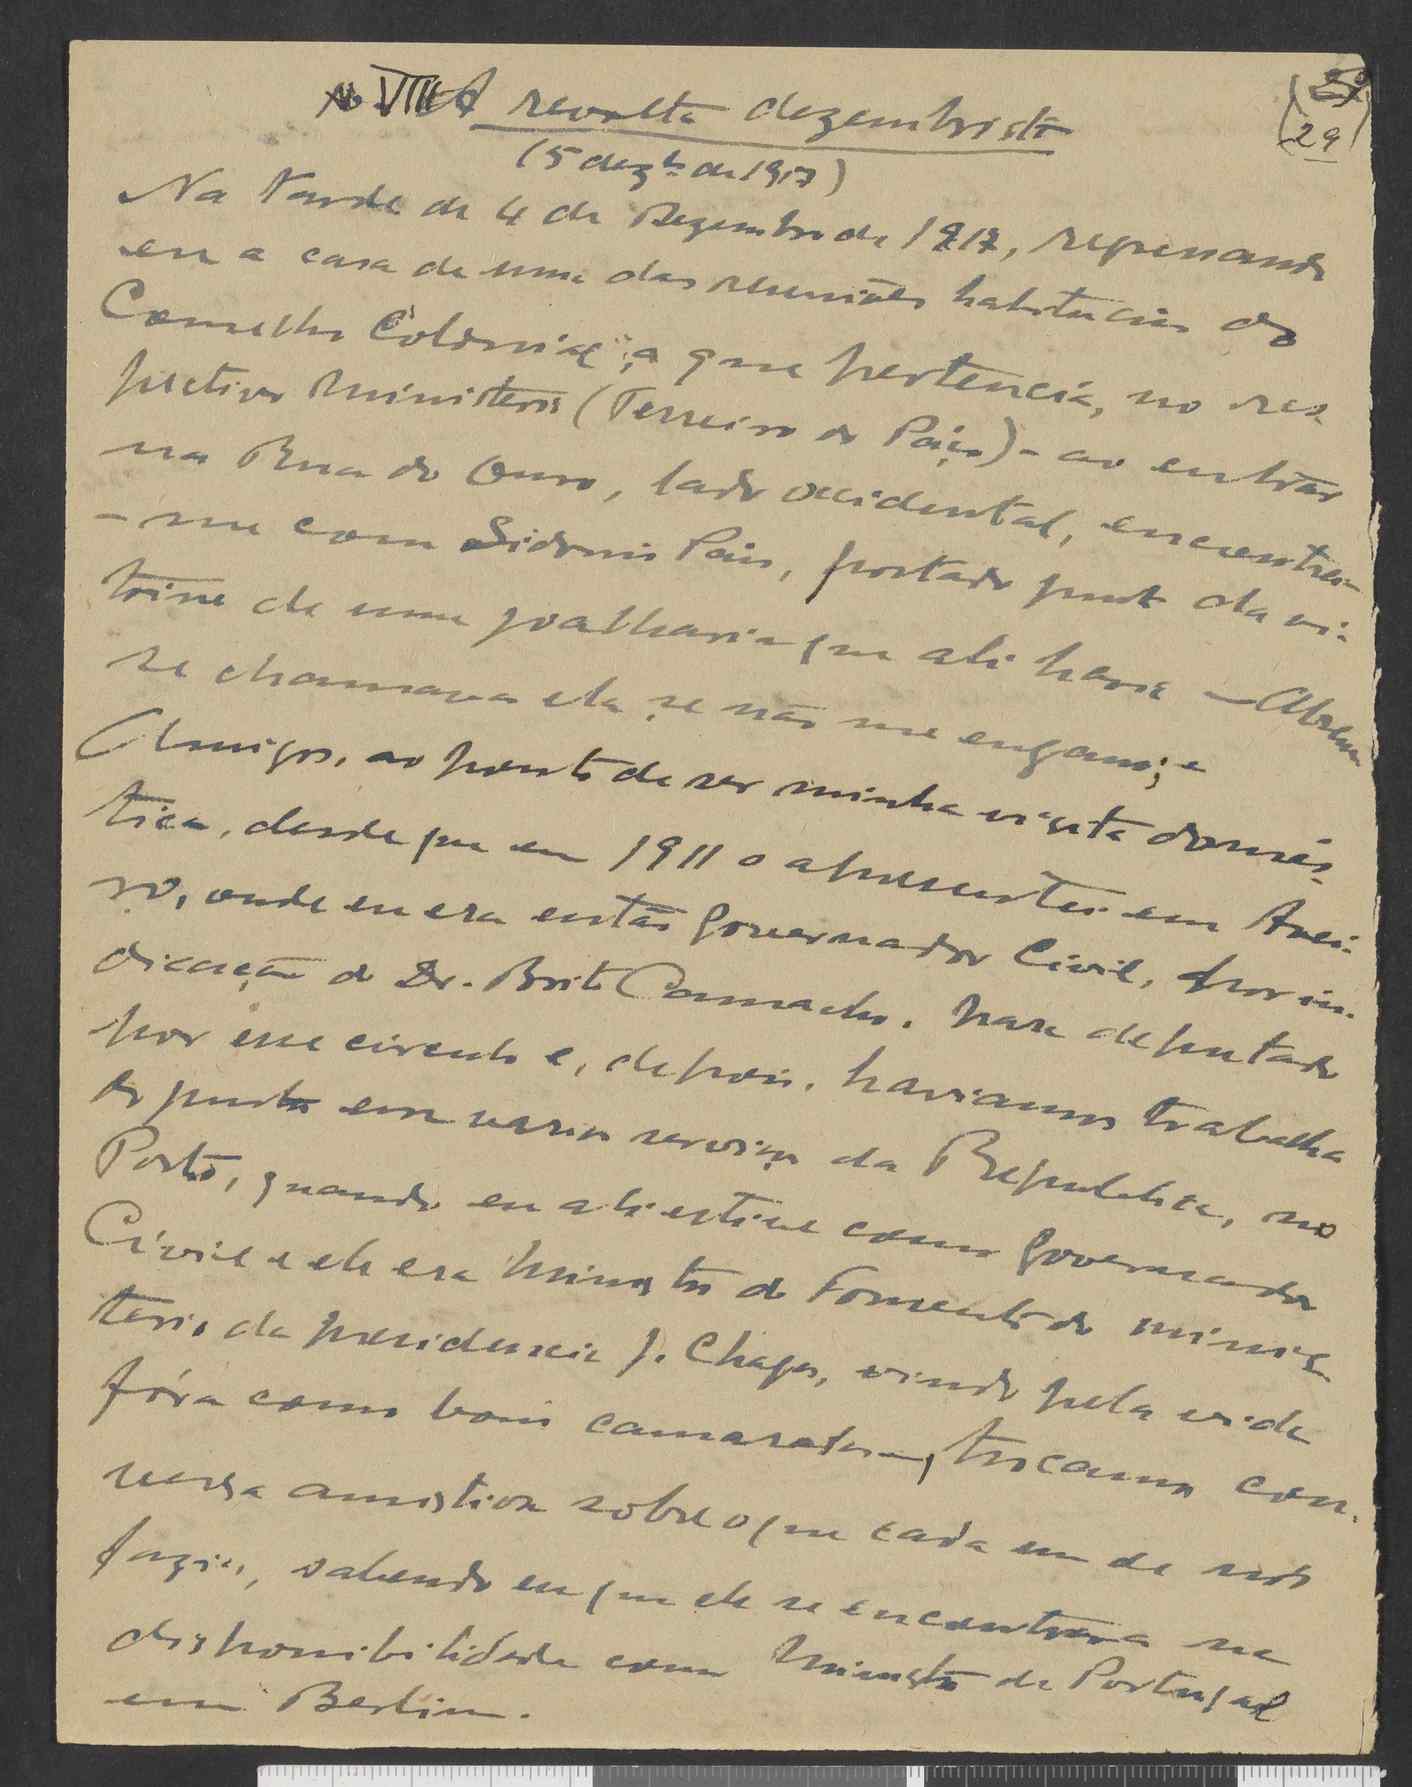 VIII A revolta dezembrista
(29)
(5 dezbº de 1917)
Na tarde de 4 de Dezembro de 1917, regressando
eu a casa de uma das reuniões habituais do
Conselho Colonial, a que pertencia, no res-
pectivo Ministerio (Terreiro do Paço) - ao entrar
na Rua do Ouro, lado occidental, encontrei-
-me com Sidonio Pais, postado junto da vi-
trine de uma joalharia que ali havia — Abreu
se chamava ela, se não me engano; e
Amigos, ao ponto de ser minha visita domes-
tica, desde que em 1911 o apresentei em Avei-
ro, onde eu era então Governador Civil, por in-
dicação do Dr. Brito Camacho, para deputado
por esse circulo e, depois, haviamos trabalha
do juntos em varios serviços da Republica, no
Porto, quando eu ali estive como Governador
Civil e ele era Ministro do Fomento do minis-
terio da presidencia J. Chagas, vindo pela vida
fóra como bons camaradas —, trocamos con-
versa amistosa sobre o que cada um de nós
fazia, sabendo eu que ele se encontrava na
disponibilidade como Ministro de Portugal
em Berlim.